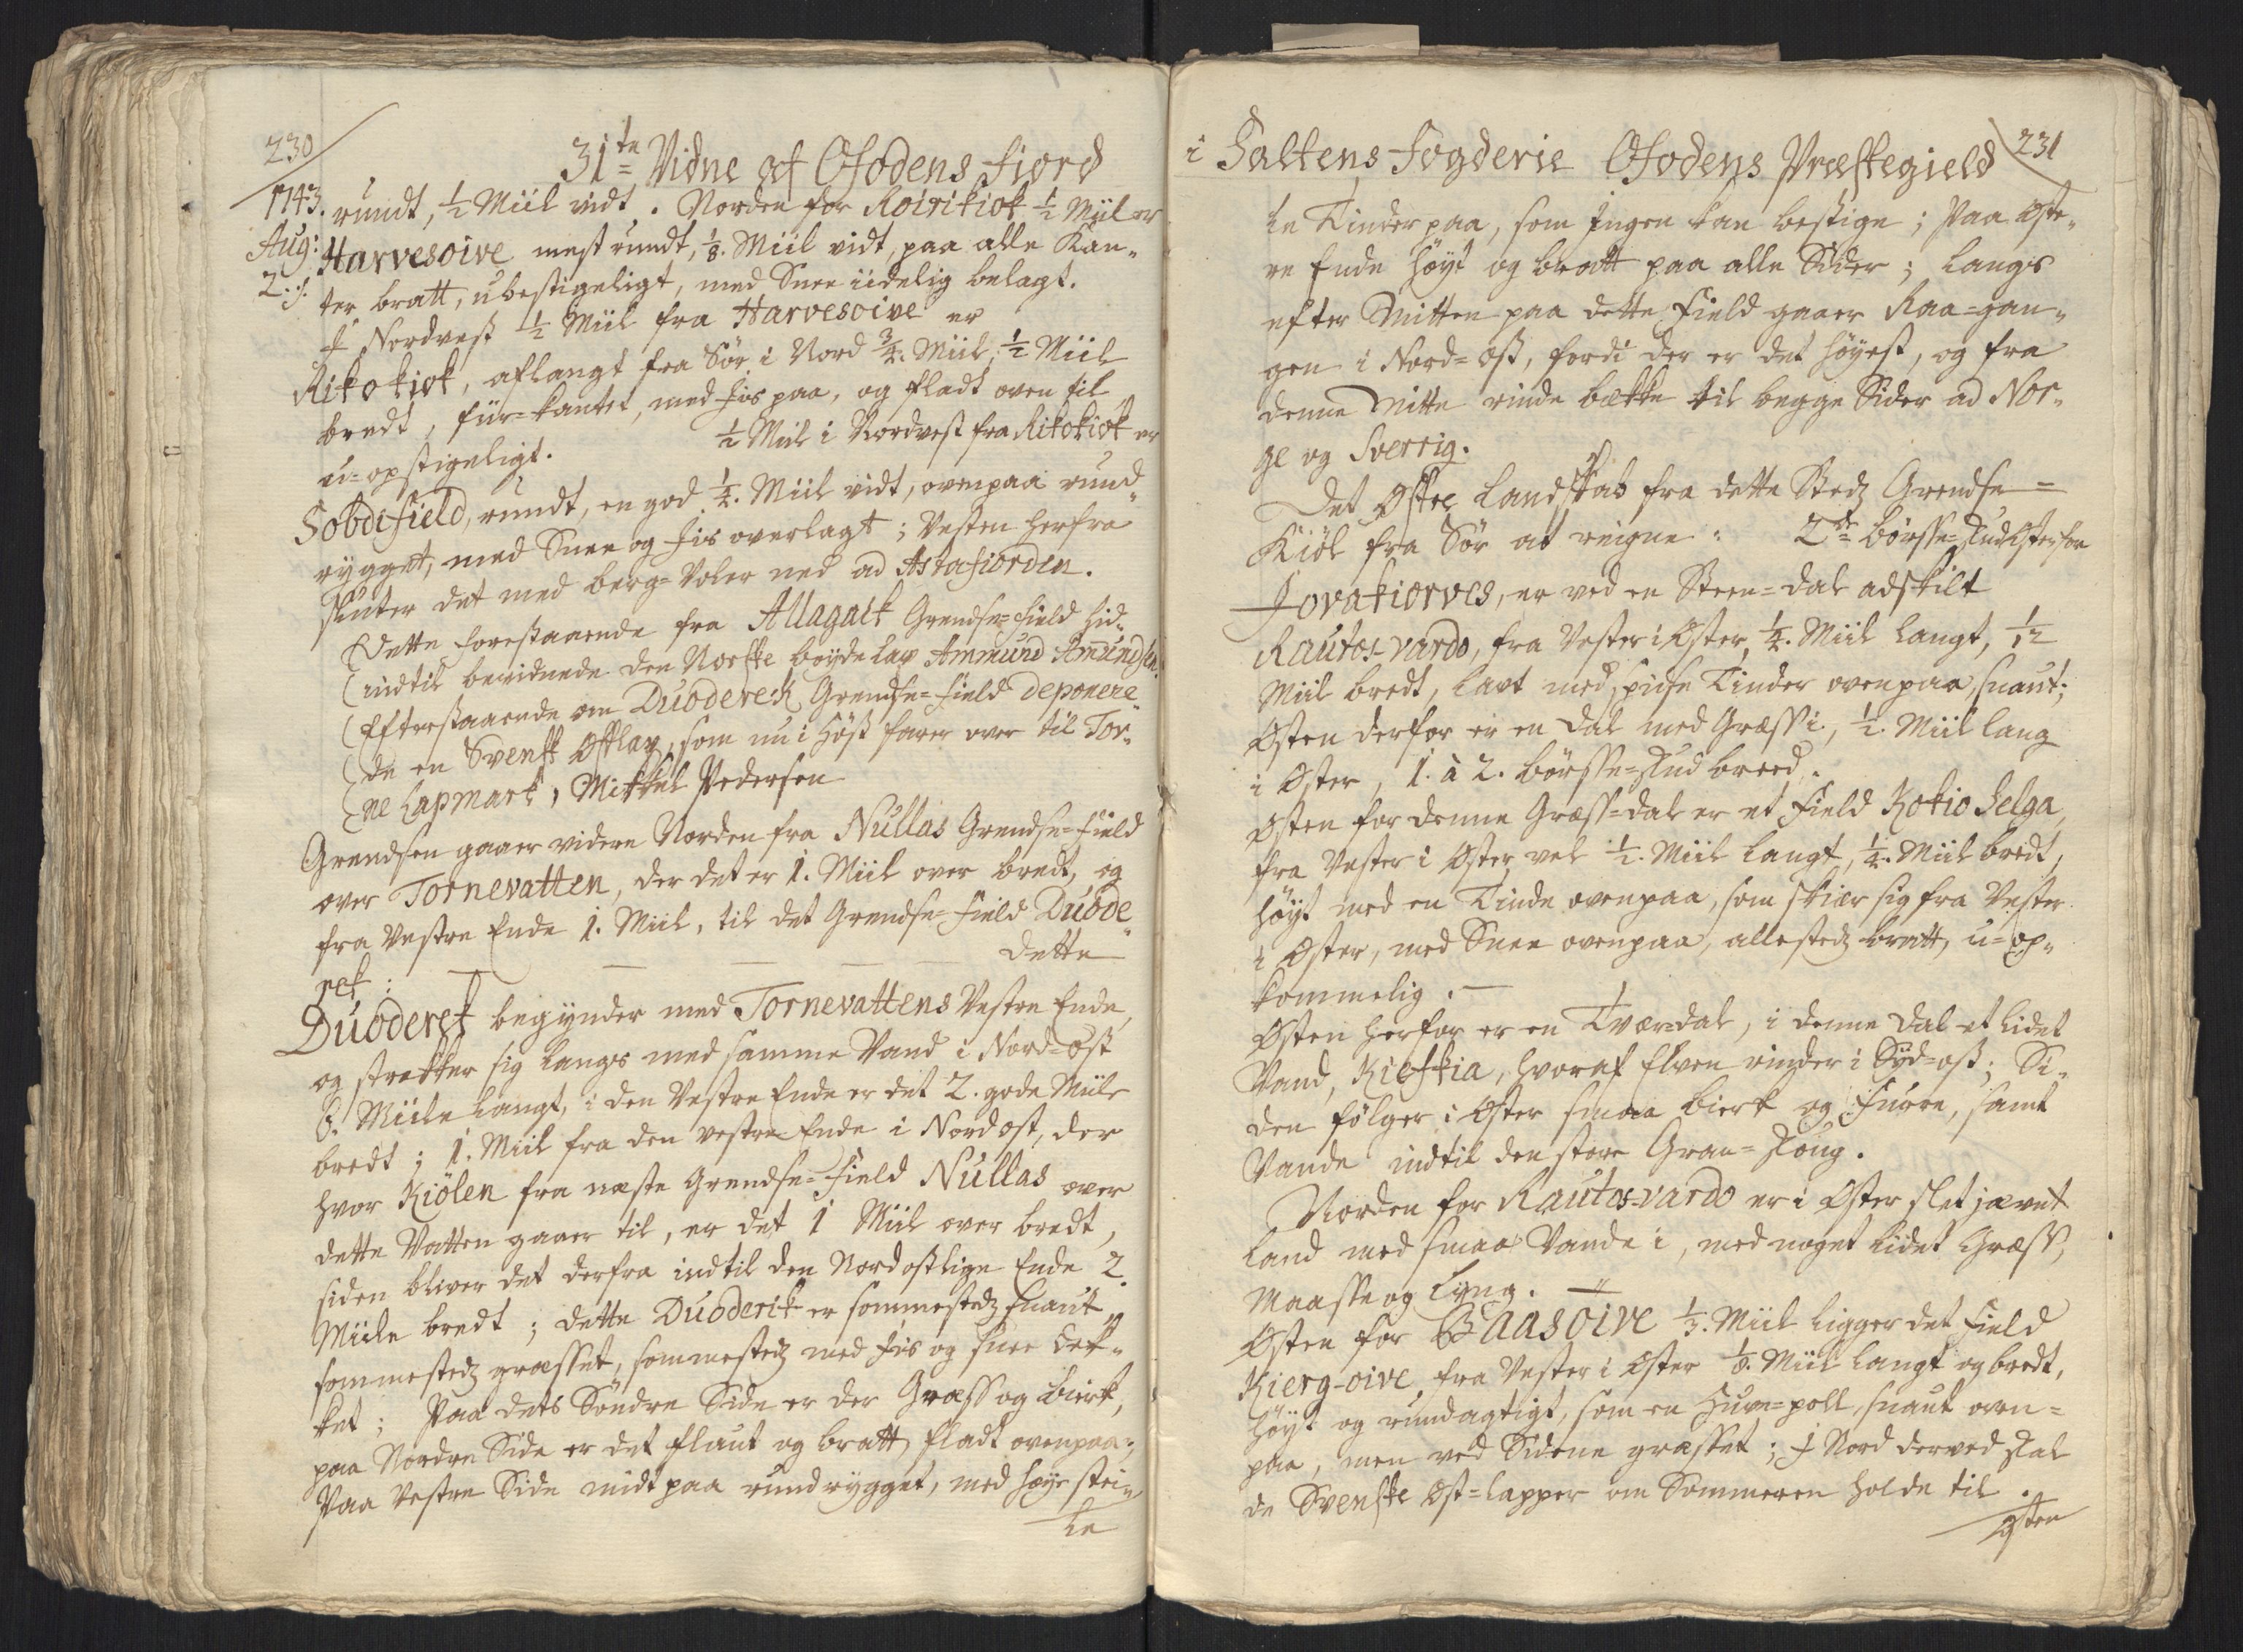 230
31te Vidne af Ofodens Fiord
1743. rundt, 1/2 Miil vidt. Norden for Roirikiok 1/2 Myl er
Aug: Harvesoive mest rundt, 1/8. Miil vidt, paa alle Kan-
2:s. ter bratt, ubestigeligt, med Snee iidelig belagt.
J Nordvest 1/2 Miil fra Harvesoive er
Rikokiok, aflangt fra Sør i Nord 3/4. Miil, 1/2 Miil
bredt, fiir-kantet, med Jis paa, og fladt oven til
u-opstigeligt. 1/2 Miil i Nordvest fra Rikokiok er
Sobdifield, rundt, en god 1/4. Miil vidt, ovenpaa rund-
rygget, med Snee og Jis overlagt; Vesten herfra
skuter det med berg-Voler ned ad Astafiorden.
(Dette forestaaende fra Allagaik Grendse-Field hid-
(indtil bevidnede den Norske bøyde Lap Ammund Amundsen.
(Efterstaaende om Duodereck Grendse-Field deponere-
(de en Svensk Østlap, som nu i Høst farer over til Tor-
(ne Lapmark, Mikkel Pedersen
Grendsen gaaer videre Norden fra Nullas Grendse-Field
over Tornevatten, der det er 1. Miil over bredt, og
fra Vestre Ende 1. Miil, til det Grendse-Field Duode-
rek: dette
Duoderek begynder med Tornevattens Vestre Ende,
og strekker sig langs med samme Vand i Nord-ost
6. Miile langt, i den Vestre Ende er det 2. gode Miile
bredt; 1. Miil fra den vestre Ende i Nordost, der
hvor Kiölen fra næste Grendse-Field Nullas over
dette Vatten gaaer til, er det 1 Miil over bredt,
siden bliver det derfra indtil den Nordostlige Ende 2.
Miile bredt; dette Duoderik er sommestedz snaut,
sommestedz græsset, sommestedz med Jis og snee dek-
ket; Paa dets Söndre Side er der Græss og Birk,
paa Nordre Side er det flaut og bratt, fladt ovenpaa;
Paa Vestre Side midt paa rundrygget, med høye stei-
le
i Saltens Fogderie Ofodens Præstegield 231
le Tinder paa, som Jngen kan bestige; Paa Øste-
re Ende høyt og bratt paa alle Sider; langs
efter Mitten paa dette Field gaaer Raa-gan-
gen i Nord-ost, fordi der er det høyest, og fra
denne Mitte rinde bække til begge Sider ad Nor-
ge og Sverrig.
Det Østre Landskab fra dette Stedz Grendse-
Kiöl fra Sör at reigne: 2de børsse-skud Øster for
Jovakiorves, er ved en Steen-dal adskilt
Rautos-vardo, fra Vester i Øster, 1/4. Miil langt, 1/12
Miil bredt, lavt med spidse Tinder ovenpaa, snaut;
Østen derfor er en dal med Græss i, 1/2. Miil lang
i Øster, 1. à 2. børsse-skud breed.
Østen for denne Græss-dal er et Field Kokio Selga,
fra Vester i Øster vel 1/2. Miil langt, 1/4. Miil bredt,
høyt med en Tinde ovenpaa, som skiær sig fra Vester
i Øster, med Snee ovenpaa, allestedz bratt, u-op-
kommelig.
Østen herfor er en Tvær-dal, i denne dal et lidet
Vand, Kieskia, hvoraf Elven rinder i Syd-ost; Si-
den følger i Øster smaa birk og Furre, samt
Vande indtil den store Gran-skoug.
Norden for Rautos-vardo er i Øster slet jævnt
land med smaa Vande i, med noget lidet Græss,
Maasse og Lyng.
Østen for Baasoive 1/3. Miil ligger det Field
Kierg-oive, fra Vester i Øster 1/8. Miil langt og bredt,
høyt og rundagtigt, som en Huve-poll, snaut oven-
paa, men ved Siderne græsset; J Nord derved skal
de Svenske Øst-lapper om Sommeren holde til.
Østen